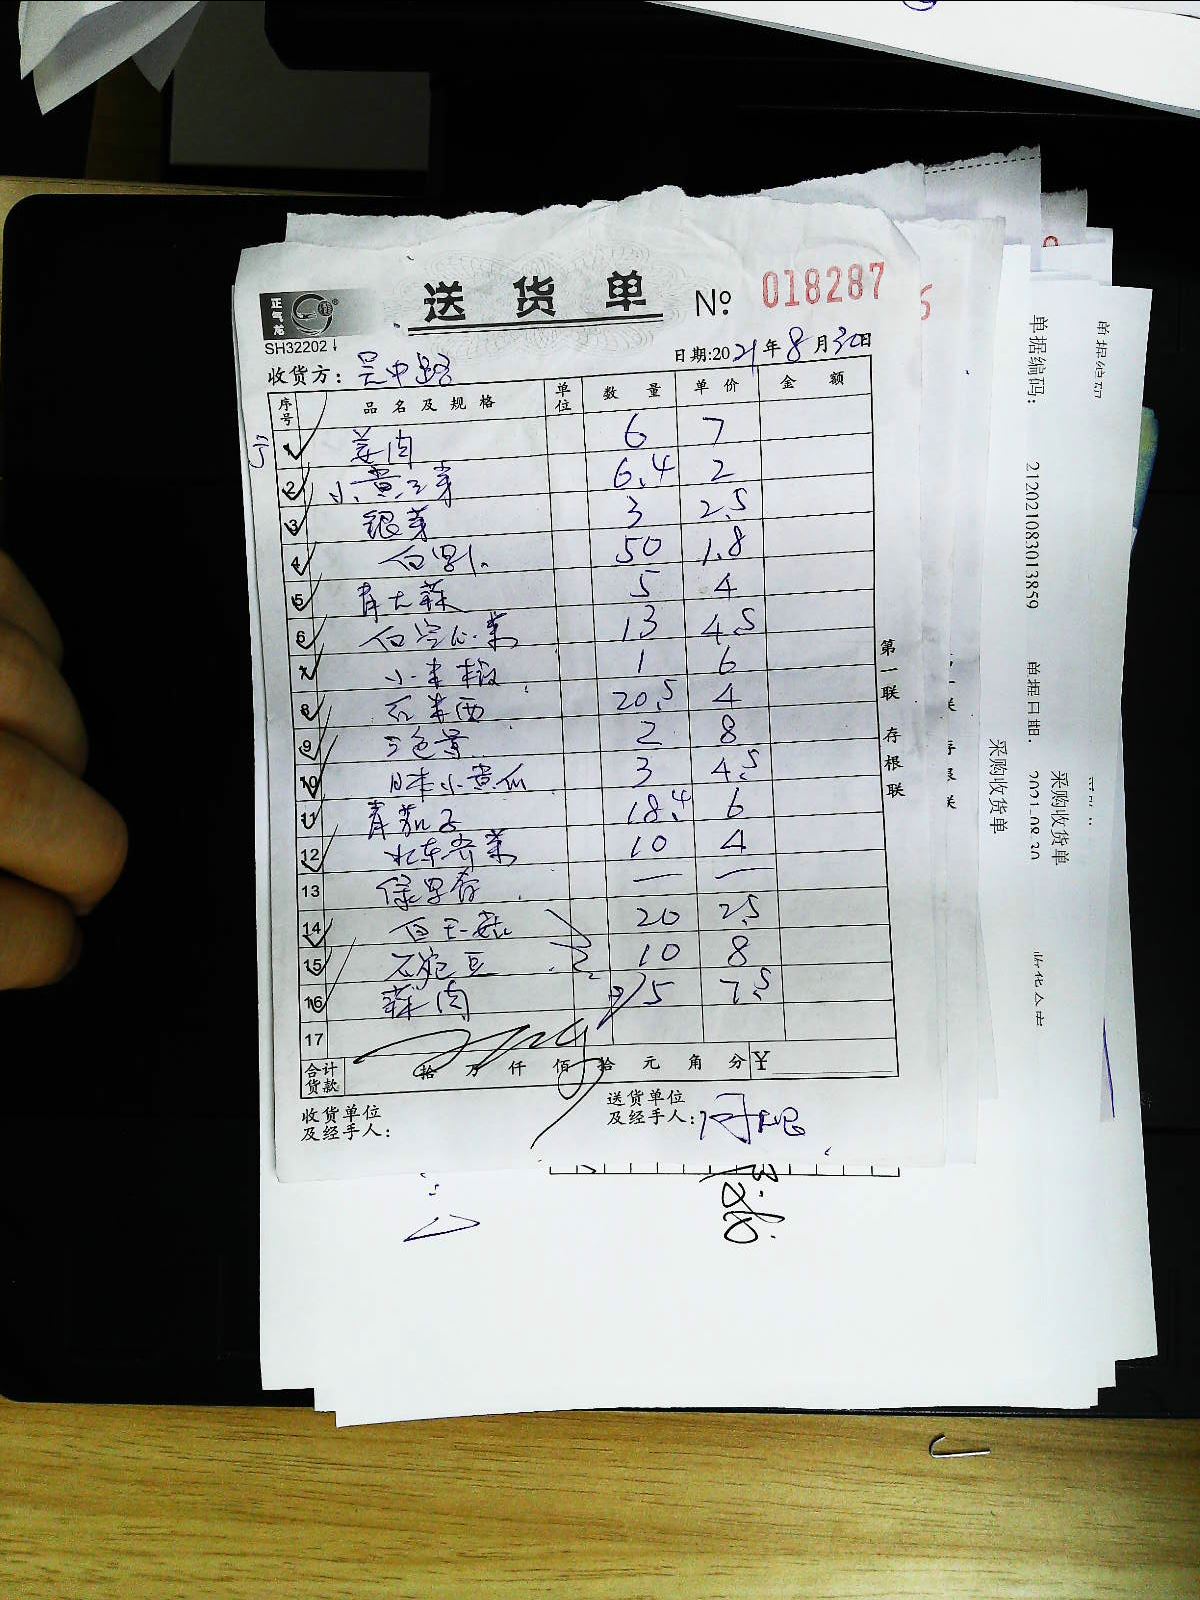 正气龙
SH32202
送货单 № 018287
日期:2021年8月30日
收货方: 吴中路
序号 品名及规格 单位 数量 单价 金额
1 姜肉 6 7
2 小黄豆芽 6.4 2
3 银芽 3 2.5
4 50 1.8
5 青大蒜 5 4
6 白空心菜 13 4.5
7 小米椒 1 6
8 20.5 4
9 2 8
10 日本小黄瓜 3 4.5
11 青茄子 18.4 6
12 10 4
13 — —
14 白玉菇 20 2.5
15 10 8
16 蒜肉 5 7.5
17
合计货款 拾 万 仟 佰 拾 元 角 分 ¥
收货单位及经手人:
送货单位及经手人:
第一联 存根联
存根联
单据编码: 212021083013859 单据日期: 2021-08-30
采购收货单
采购收货单
单据编码